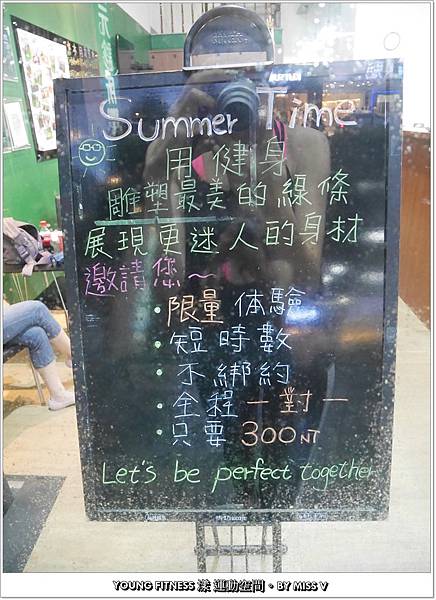 Summer Time
用健身
雕塑最美的線條
展現更迷人的身材
邀請您～
・限量体驗
・短時數
・不綁約
・全程一對一
・只要300NT
Let's be perfect together
YOUNG FITNESS 漾 運動空間・BY MISS V